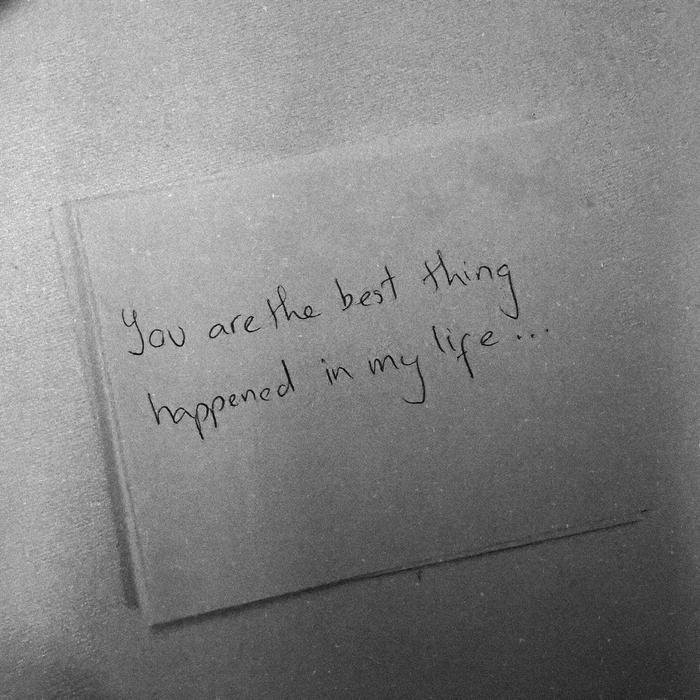 You are the best thing
happened in my life...